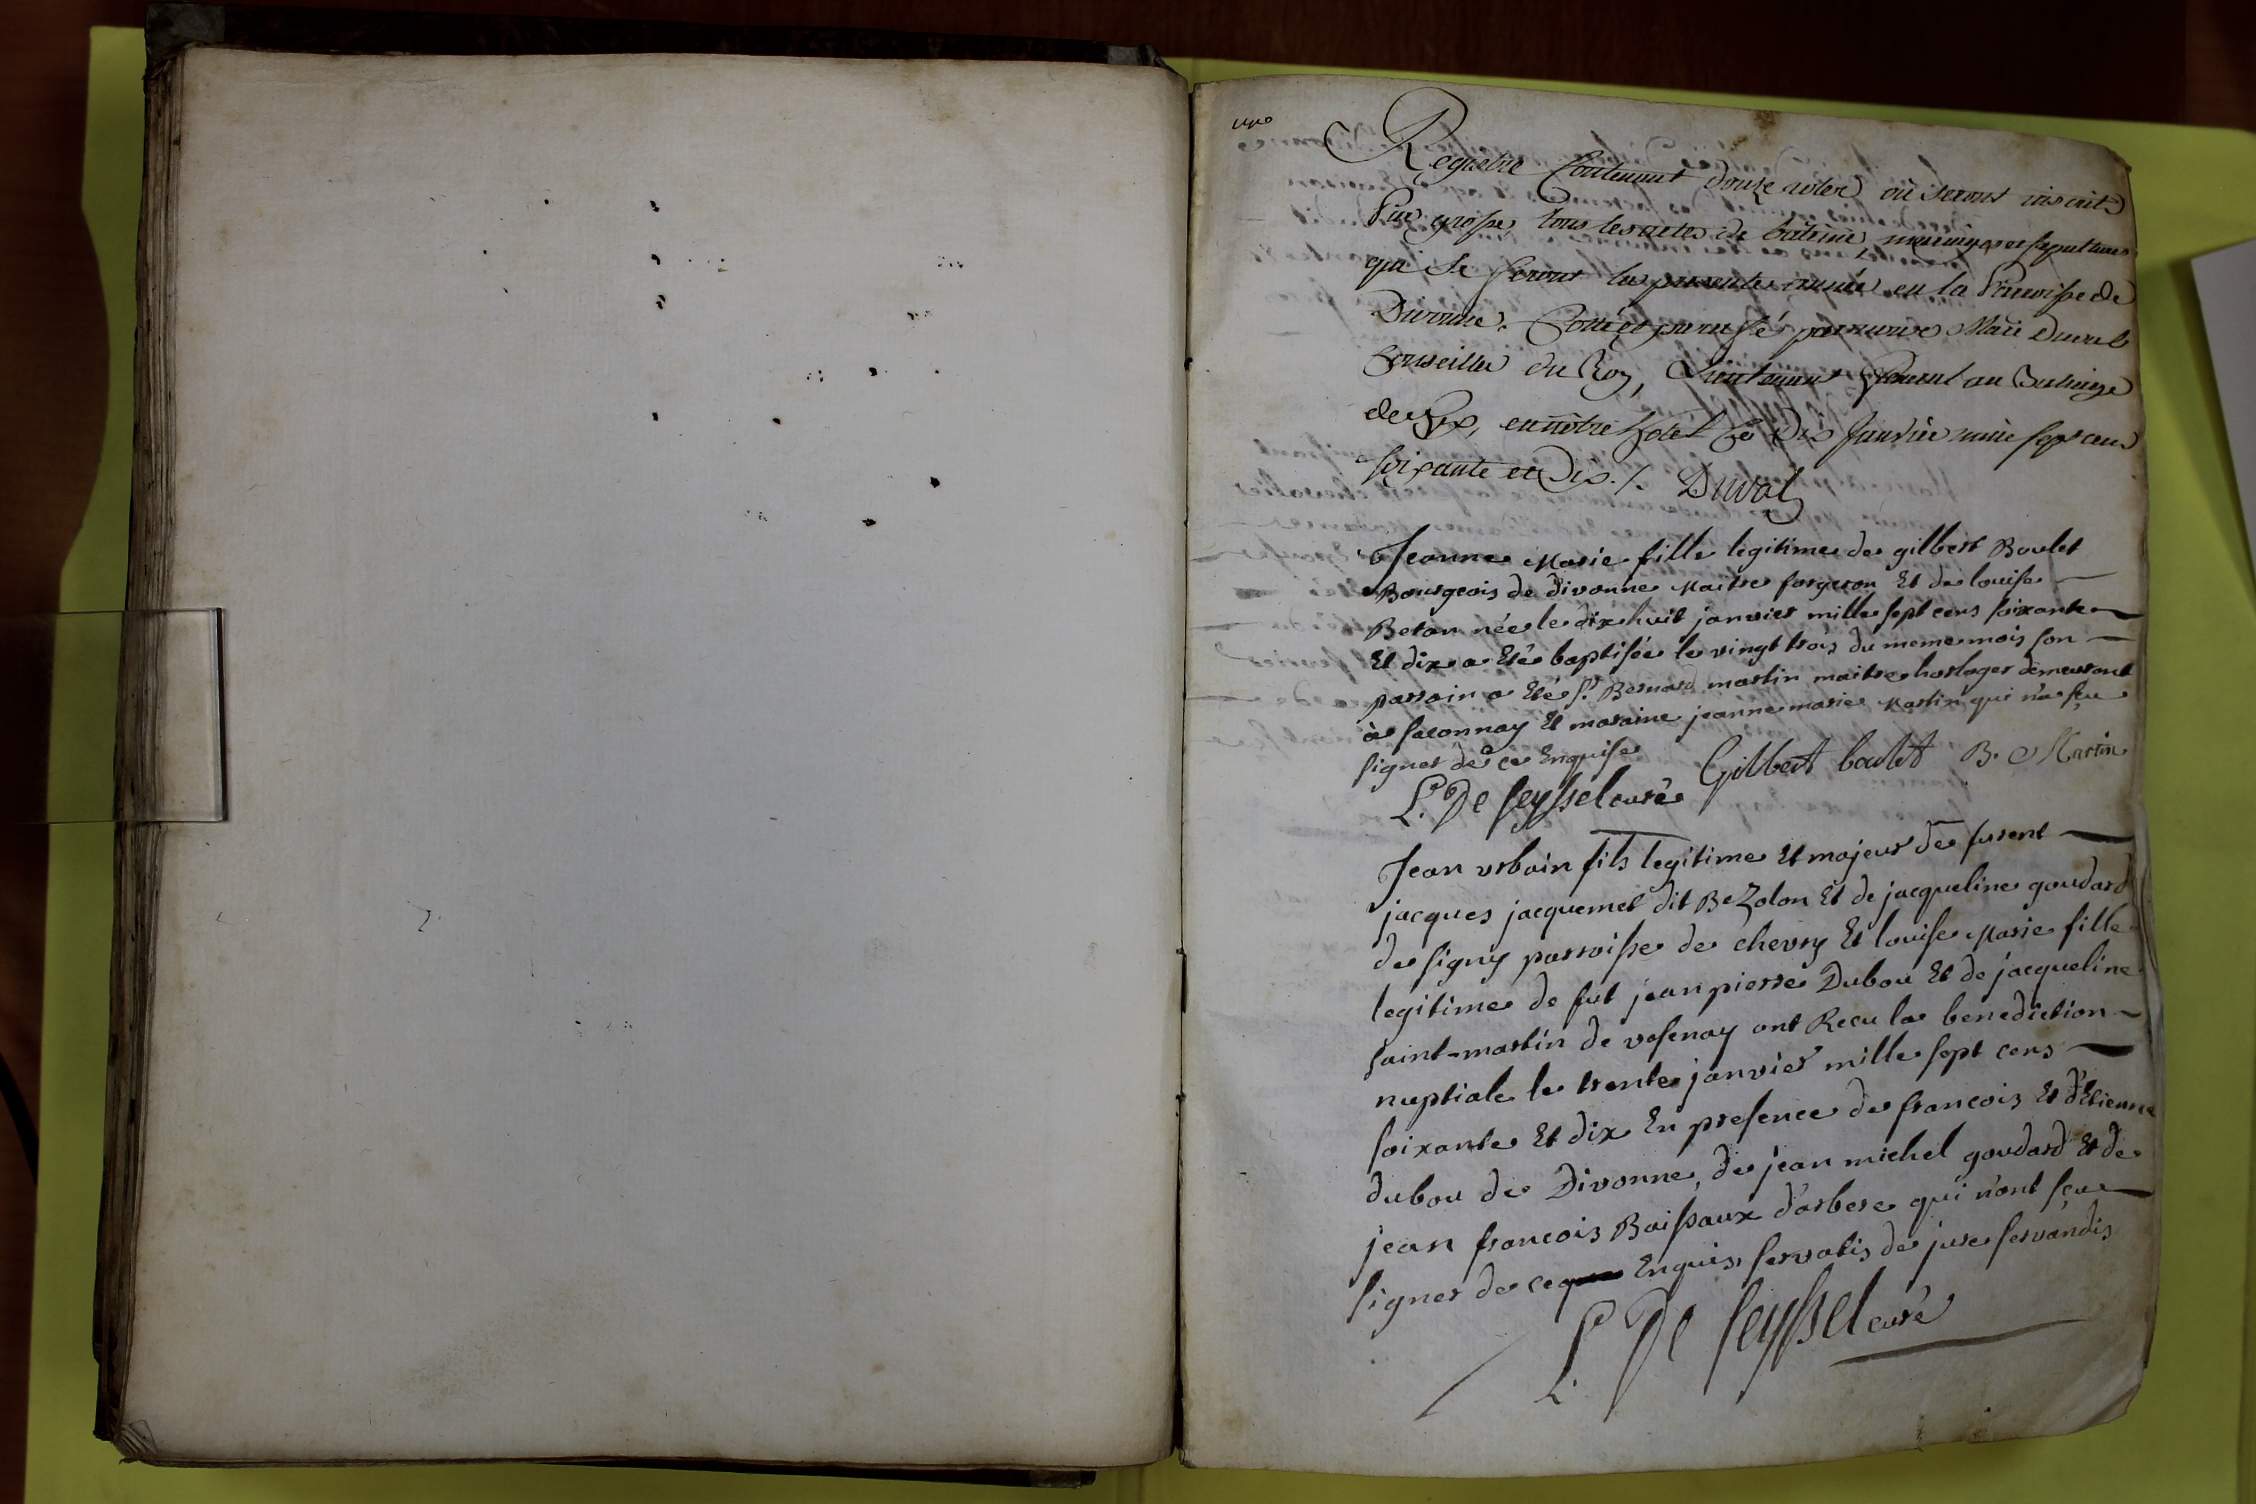 Registre Contenant douze roles où seront inscrits
Sur grosse, tous les actes de batême, mariages et sepultures
qui se feront la presente année en la Parroisse de
Divonne. Cotté et paraffé par nous Duval
Conseiller du Roy, Lieutenant General au Bailliage
de Gex, en nôtre hotel le Dix Janvier mille sept cent
soixante et Dix ./. Duval
Jeanne Marie fille legitime de gilbert Boulet
Bourgeois de divonne Maitre forgeron Et de louise
Betan née le dix huit janvier mille sept cens soixante
Et dix a Eté baptisée le vingt trois du meme mois son
parrain a Eté Sr. Bernard martin maitre horloger demeurant
à saconnay Et maraine jeanne marie Martin qui n'a sçu
signer de ce Enquise Gilbert boulet B. Martin
L. De Seyssel curé
Jean urbain fils legitime Et majeur de furent
jacques jacquemet dit Bezolon Et de jacqueline goudard
de signy parroisse de chevry Et louise Marie fille
legitime de fut jean pierre Dubou Et de jacqueline
saint-martin de vesenay ont Recu la benediction
nuptiale le trente janvier mille sept cens
soixante Et dix En presence de francois Et d'Etienne
dubou de Divonne, de jean michel goudard Et de
jean francois Baissaux d'arbere qui n'ont sçu
signer de ce Enquis, servatis de jure servandis
L. De Seyssel curé